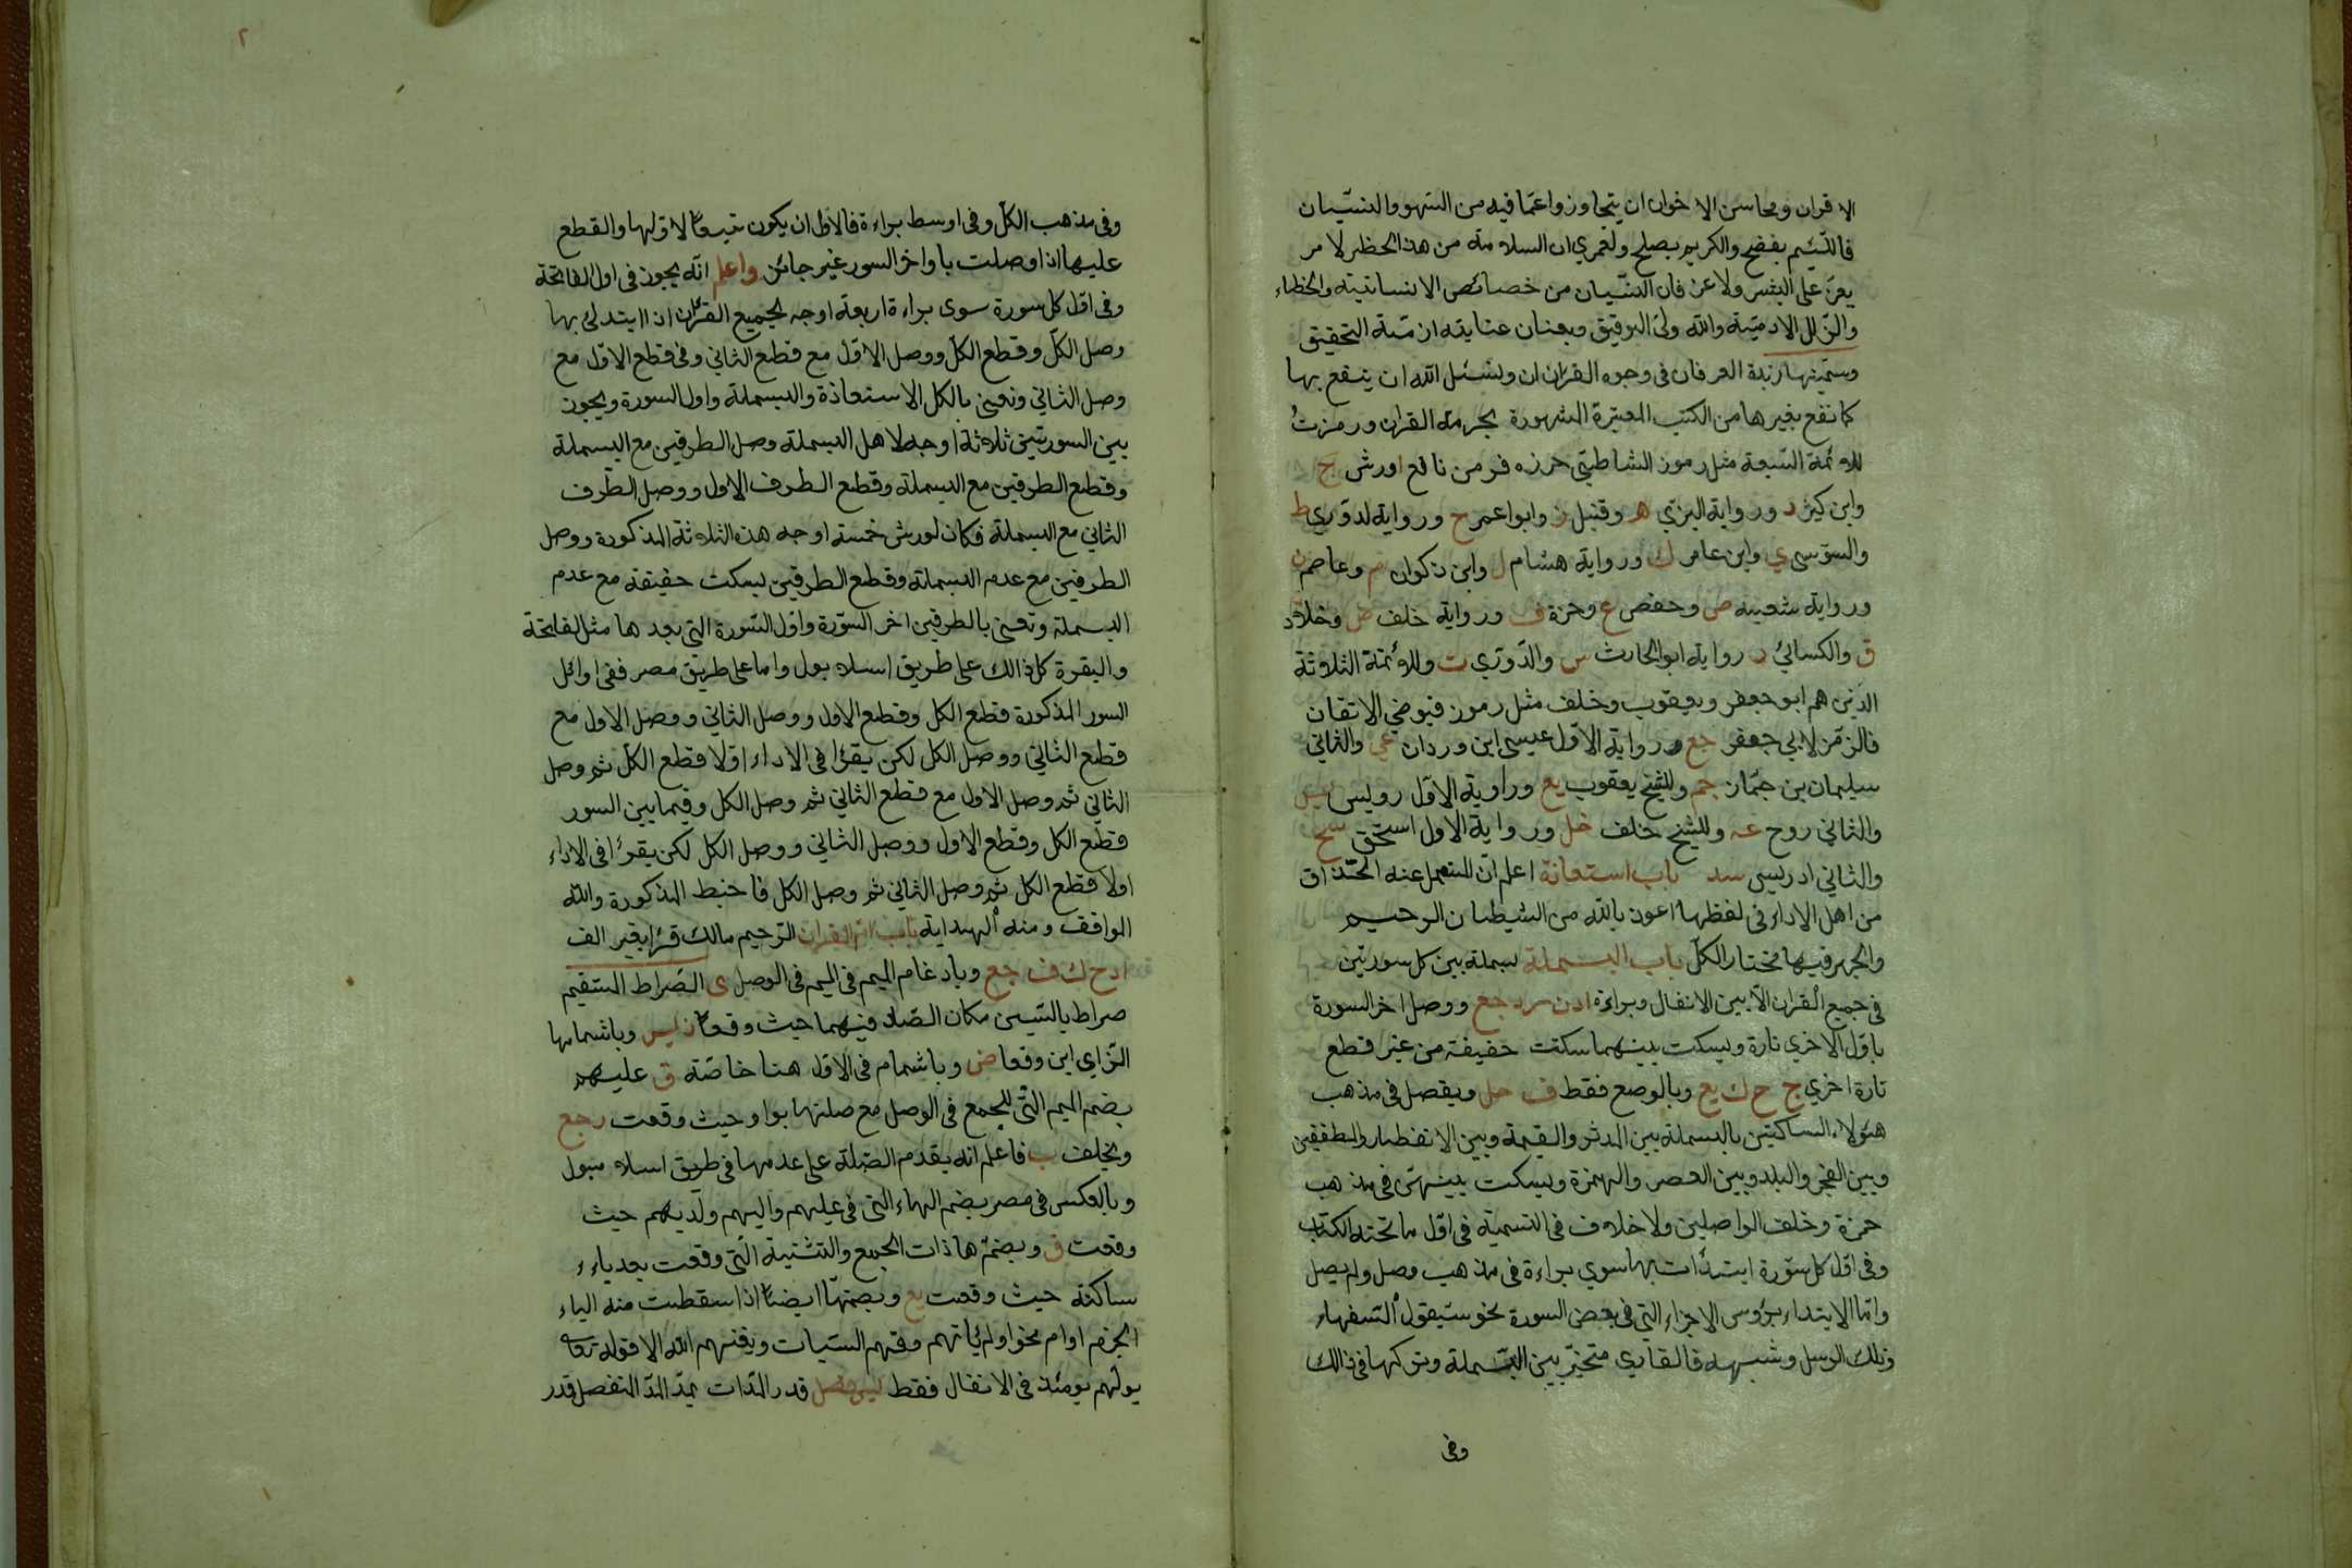 الاقران ومحاسن الاخوان ان يتجاوزوا عما فيه من السهو والنسيان
فاللئيم يفضح والكريم يصلح ولعمري ان السلامة من هذا الخطر لامر
يعز على البشر ولا عز فان النسيان من خصائص الانسانية والخطاء
والزلل الادمية والله ولي التوفيق وبعنان عنايته ازمة التحقيق
وسميتها زبدة العرفان في وجوه القران ونسئل الله ان ينفع بها
كما نفع بغيرها من الكتب المعتبرة المشهورة بحرمة القران ورمزت
للائمة السبعة مثل رموز الشاطبي حرزه فرمز نافع ا ورش ج
وابن كثير د ورواية البزي ه وقنبل ز وابوا عمر ح ورواية لدوري ط
والسوسي ي وابن عامر ك ورواية هشام ل وابن ذكوان م وعاصم ن
ورواية شعبه ص وحفص ع وحمزة ف ورواية خلف ض وخلاد
ق والكسائي ر رواية ابو الحارث س والدوري ت وللائمة الثلاثة
الذين هم ابو جعفر ويعقوب وخلف مثل رموز فيوضي الاتقان
فالرمز لابي جعفر جع ورواية الاول عيسى ابن وردان عي والثاني
سليمان بن جماز جم وللشيخ يعقوب يع وراوية الاول رويس يس
والثاني روح عه وللشيخ خلف خل ورواية الاول اسحق سح
والثاني ادريس سد باب استعاذة اعلم ان المستعمل عند الحذاق
من اهل الاداء في لفظها اعوذ بالله من الشيطان الرحيم
والجهر فيها مختار الكل باب البسملة بسملة بين كل سورتين
في جميع القران الا بين الانفال وبراءة ا د ن ر جع ووصل اخر السورة
باول الاخري تارة ويسكت بينهما سكتت خفيفة من غير قطع
تارة اخري ج ح ك يع وبالوصع فقط ف خل ويفصل في مذهب
هؤلاء الساكتين بالبسملة بين المدثر والقيمة وبين الانفطار والمطففين
وبين الفجر والبلد وبين العصر والهمزة ويسكت بينهن في مذهب
حمزة وخلف الواصلين ولا خلاف في التسمية في اول ما تحته الكتاب
وفي اول كل سورة ابتدأت بها سوي براءة في مذهب وصل ولم يصل
واما الابتداء برؤس الاجزاء التي في بعض السورة نحو سيقول السفهاء
وتلك الرسل وشبهه فالقاري متخير بين البسملة وتركها في ذالك
وفى
٢
وفي مذهب الكل وفي اوسط براءة فالاولى ان يكون تبعا لاولها والقطع
عليها اذا وصلت باواخر السور غير جائز واعلم انه يجوز في اول الفاتحة
وفي اول كل سورة سوى براءة اربعة اوجه لجميع القران اذا ابتدئ بها
وصل الكل وقطع الكل ووصل الاول مع قطع الثاني وفى قطع الاول مع
وصل الثاني ونعنى بالكل الاستعاذة والبسملة واول السورة ويجوز
بين السورتين ثلاثة اوجه لاهل البسملة وصل الطرفين مع البسملة
وقطع الطرفين مع البسملة وقطع الطرف الاول ووصل الطرف
الثاني مع البسملة فكان لورش خمسة اوجه هذه الثلاثة المذكورة ووصل
الطرفين مع عدم البسملة وقطع الطرفين بسكت خفيفة مع عدم
البسملة ونعنى بالطرفين اخر السورة واول السورة التي بعدها مثل الفاتحة
والبقرة كل ذالك على طريق اسلامبول واما على طريق مصر ففى اوائل
السور المذكورة قطع الكل وقطع الاول ووصل الثاني ووصل الاول مع
قطع الثاني ووصل الكل لكن يقرؤا في الاداء اولا قطع الكل ثم وصل
الثاني ثم وصل الاول مع قطع الثاني ثم وصل الكل وفيما بين السور
قطع الكل وقطع الاول ووصل الثاني ووصل الكل لكن يقرا في الاداء
اولا قطع الكل ثم وصل الثاني ثم وصل الكل فاحفظ المذكورة والله
الوافق ومنه الهداية باب ام القران الرحيم مالك قرا بغير الف
ا د ح ك ف جع وبادغام الميم في الميم في الوصل ى الصراط المستقيم
صراط بالسين مكان الصاد فيهما حيث وقعا ز يس وباشمامها
الزاي اين وقعا ض وباشمام في الاول هنا خاصة ق عليهم
بضم الميم التي للجمع في الوصل مع صلتها بواو حيث وقعت د جع
وبخلف ب فاعلم انه يقدم الصلة على عدمها في طريق اسلامبول
وبالعكس في مصر بضم الهاء التي في عليهم واليهم ولديهم حيث
وقعت ف وبضم هاذات الجمع والتثنية التي وقعت بعد ياء
ساكنة حيث وقعت يع وبضمها ايضا اذا سقطت منه الياء
الجزم اوام نحو اولم ياتهم وقهم السيات ويغنهم الله الا قوله تعا
يولهم يومئذ في الانفال فقط يس فصل قدر المدات يمد المد المنفصل قدر